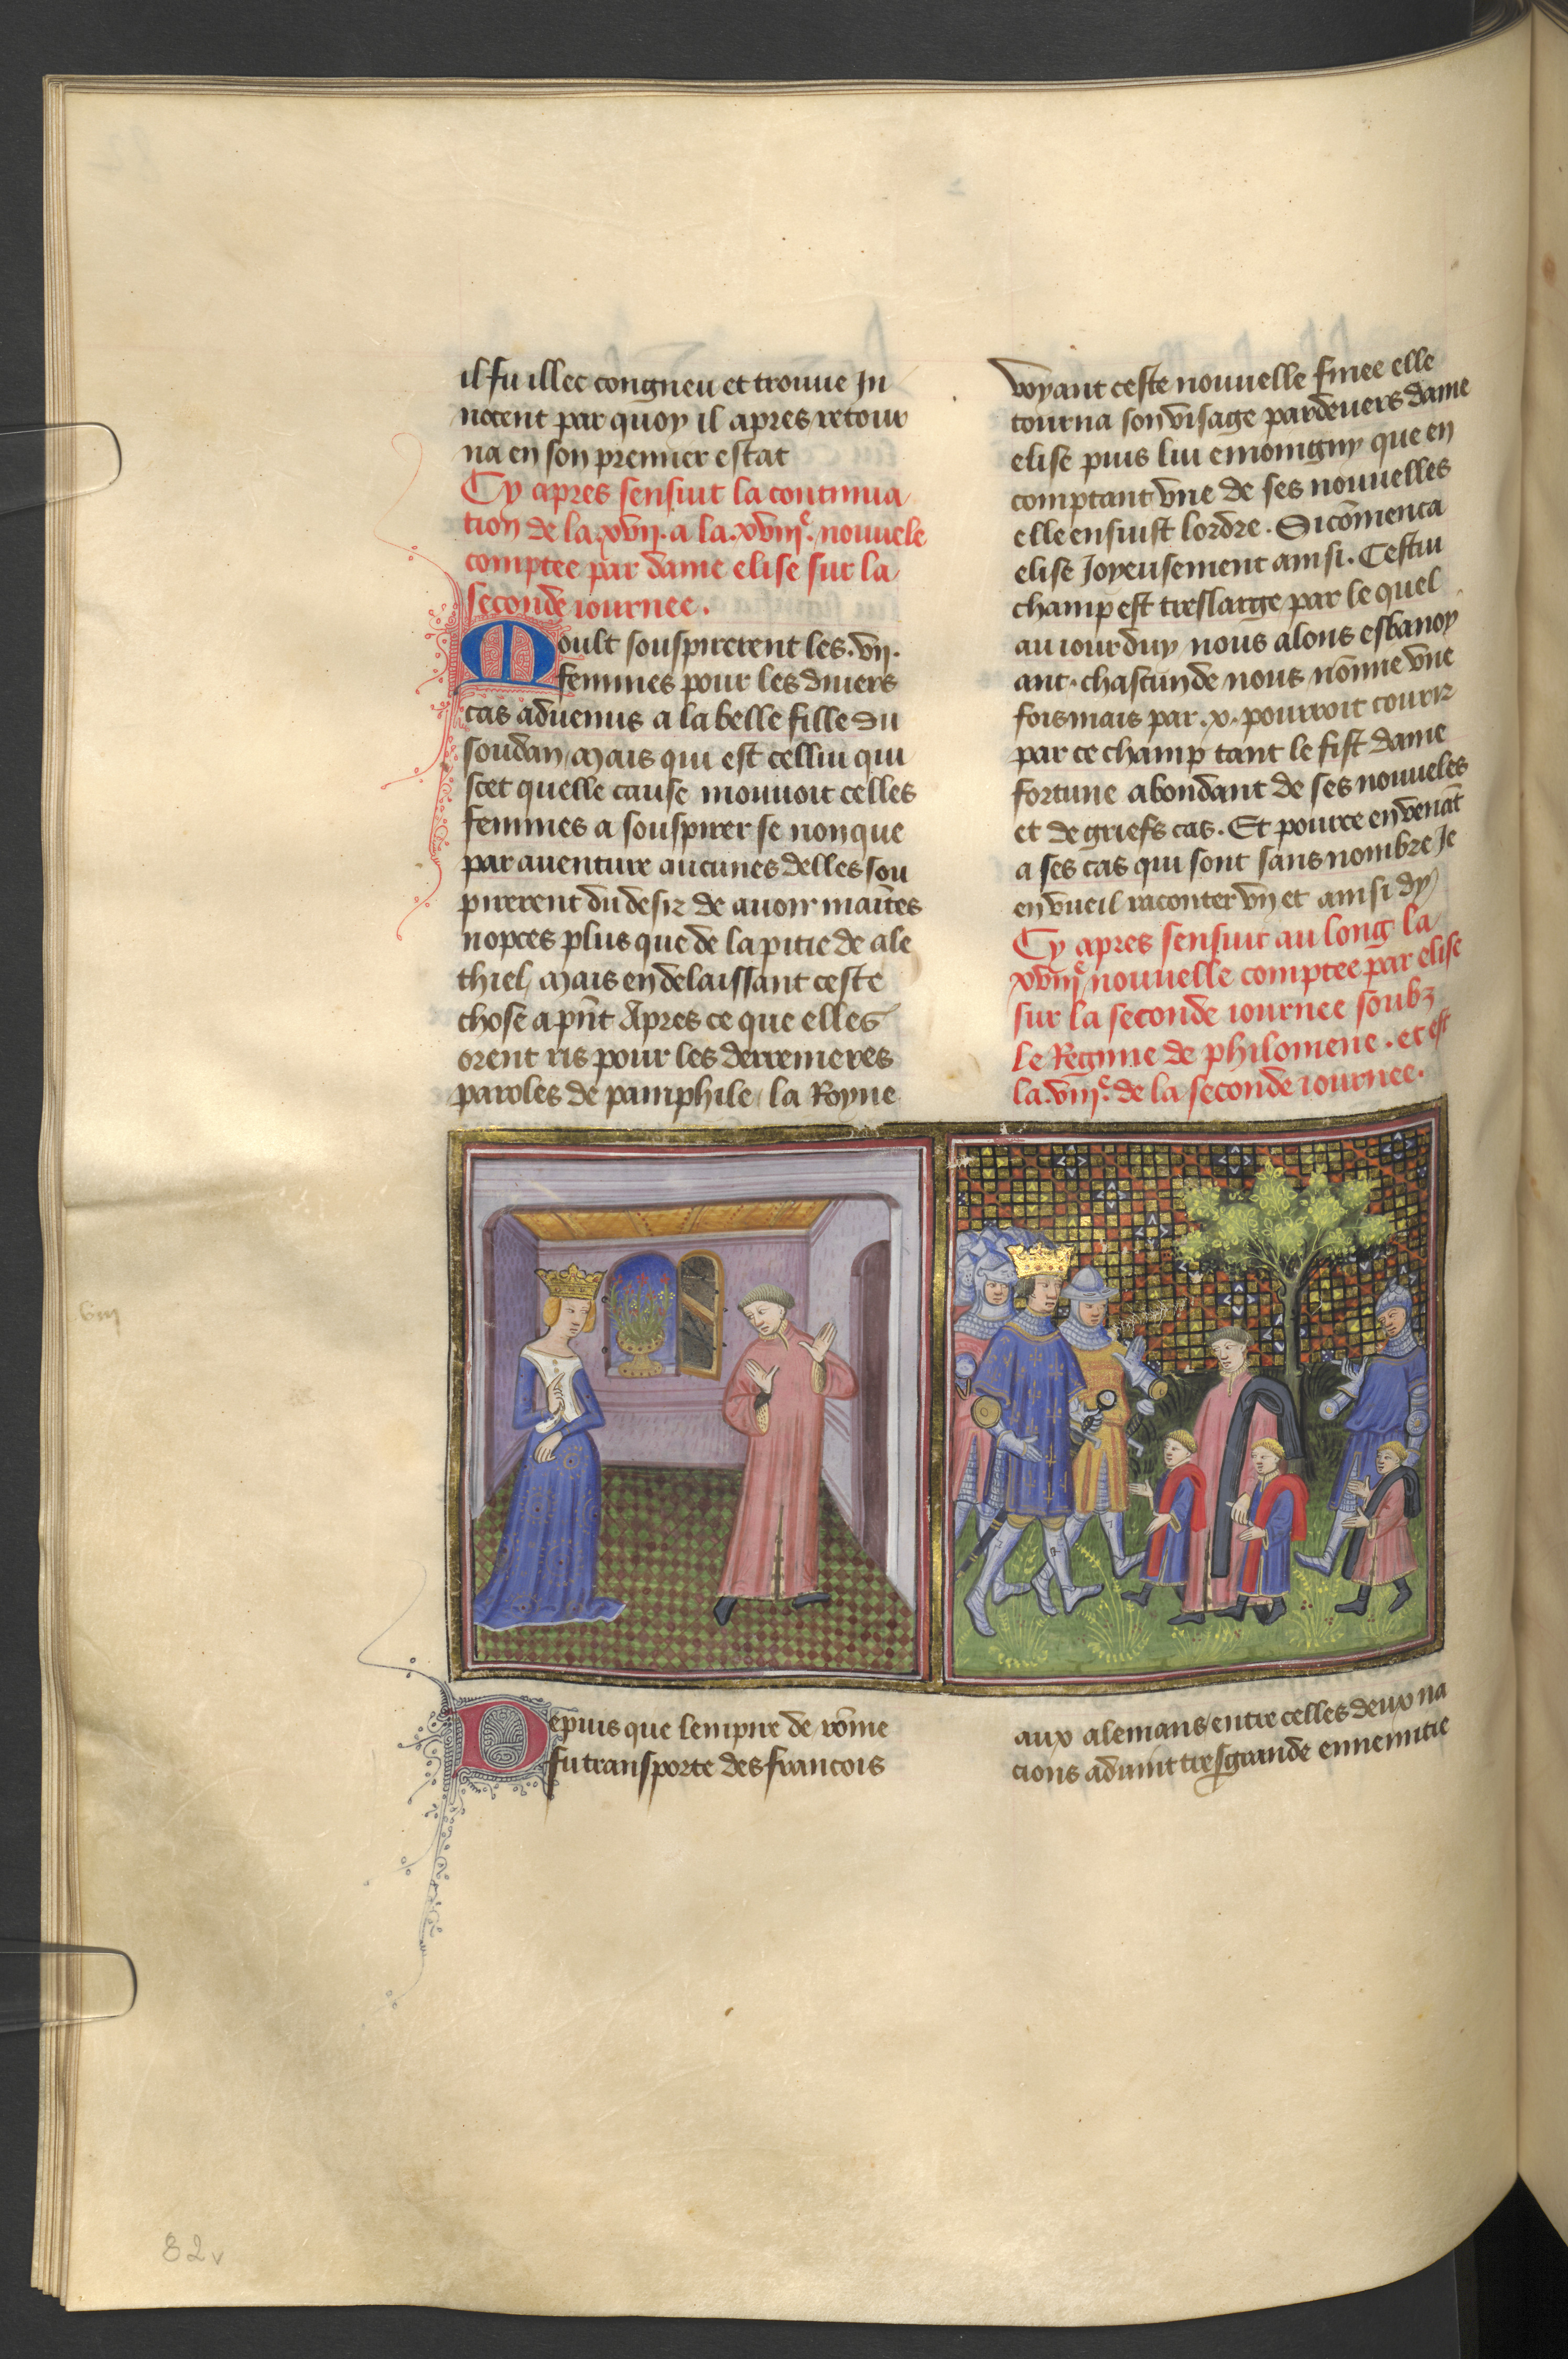 il fu illec congneu et trouue In
nocent par quoy il apres retour
na en son premier estat
Cy apres sensuit la continua
tion de la .xvij. a la .xviij.e nouuele
comptee par dame elise sur la
seconde iournee.
Moult souspirerent les .vij.
femmes pour les diuers
cas aduenus a la belle fille du
soudan / Mais qui est cellui qui
scet quelle cause mouuoit celles
femmes a souspirer se non que
par auenture aucunes delles sou
pirerent du desir de auoir maītes
nopces plus que de la pitie de ale
thiel / Mais en delaissant ceste
chose a pn̄t Apres ce que elles
orent ris pour les derremeres
paroles de pamphile / la Royne
voyant ceste nouuelle finee elle
tourna son visage pardeuers dame
elise puis lui emoingny que en
comptant vne de ses nouuelles
elle ensuist lordre . Si cōmenca
elise Joyeusement ainsi . Cestui
champ est treslarge par le quel
au iourduy nous alons esbanoy
ant . chascun de nous nōme vne
fois mais par .x. pourroit courir
par ce champ tant le fist dame
fortune abondant de ses nouueles
et de griefs cas . Et pource en venāt
a ses cas qui sont sans nombre Je
en vueil raconter vn et ainsi dy
Cy apres sensuit au long la
xviij.e nouuelle comptee par elise
sur la seconde iournee soubz
le Regime de philomene . et est
la .viij.e de la seconde iournee .
Depuis que lempire de rōme
fu transporte des francois
aux alemans / entre celles deux na
cions aduint tresgrande ennemitie
viij
82v